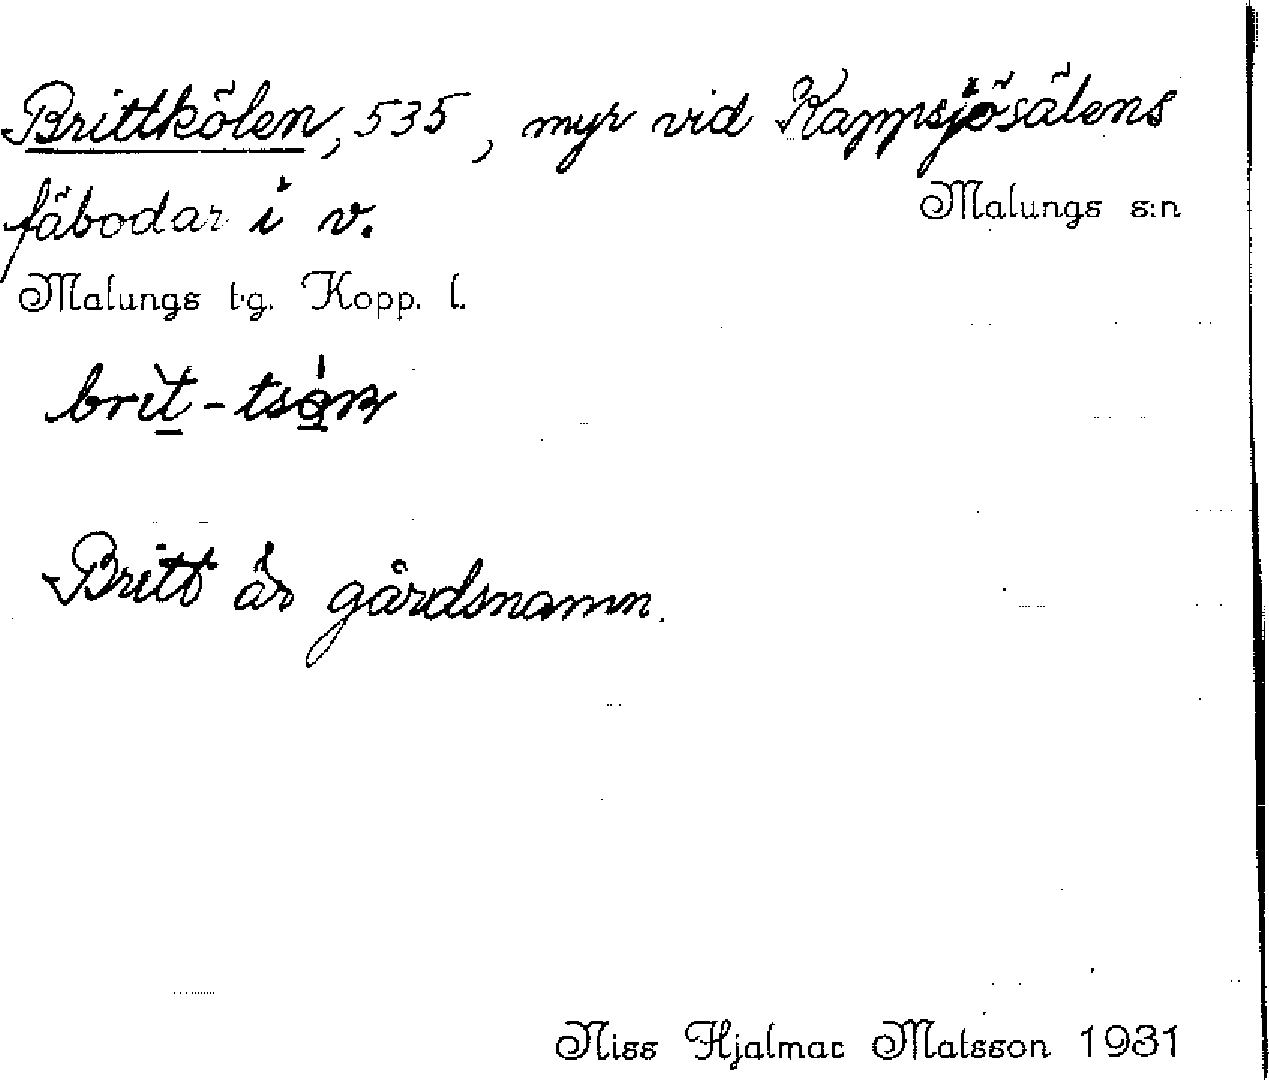 Brittkölen, 535, myr vid Kappsjösälens
fäbodar i v.
Malungs s:n
Malungs tg. Kopp. l.
Britt är gårdsnamn.
Niss Hjalmar Matsson 1931